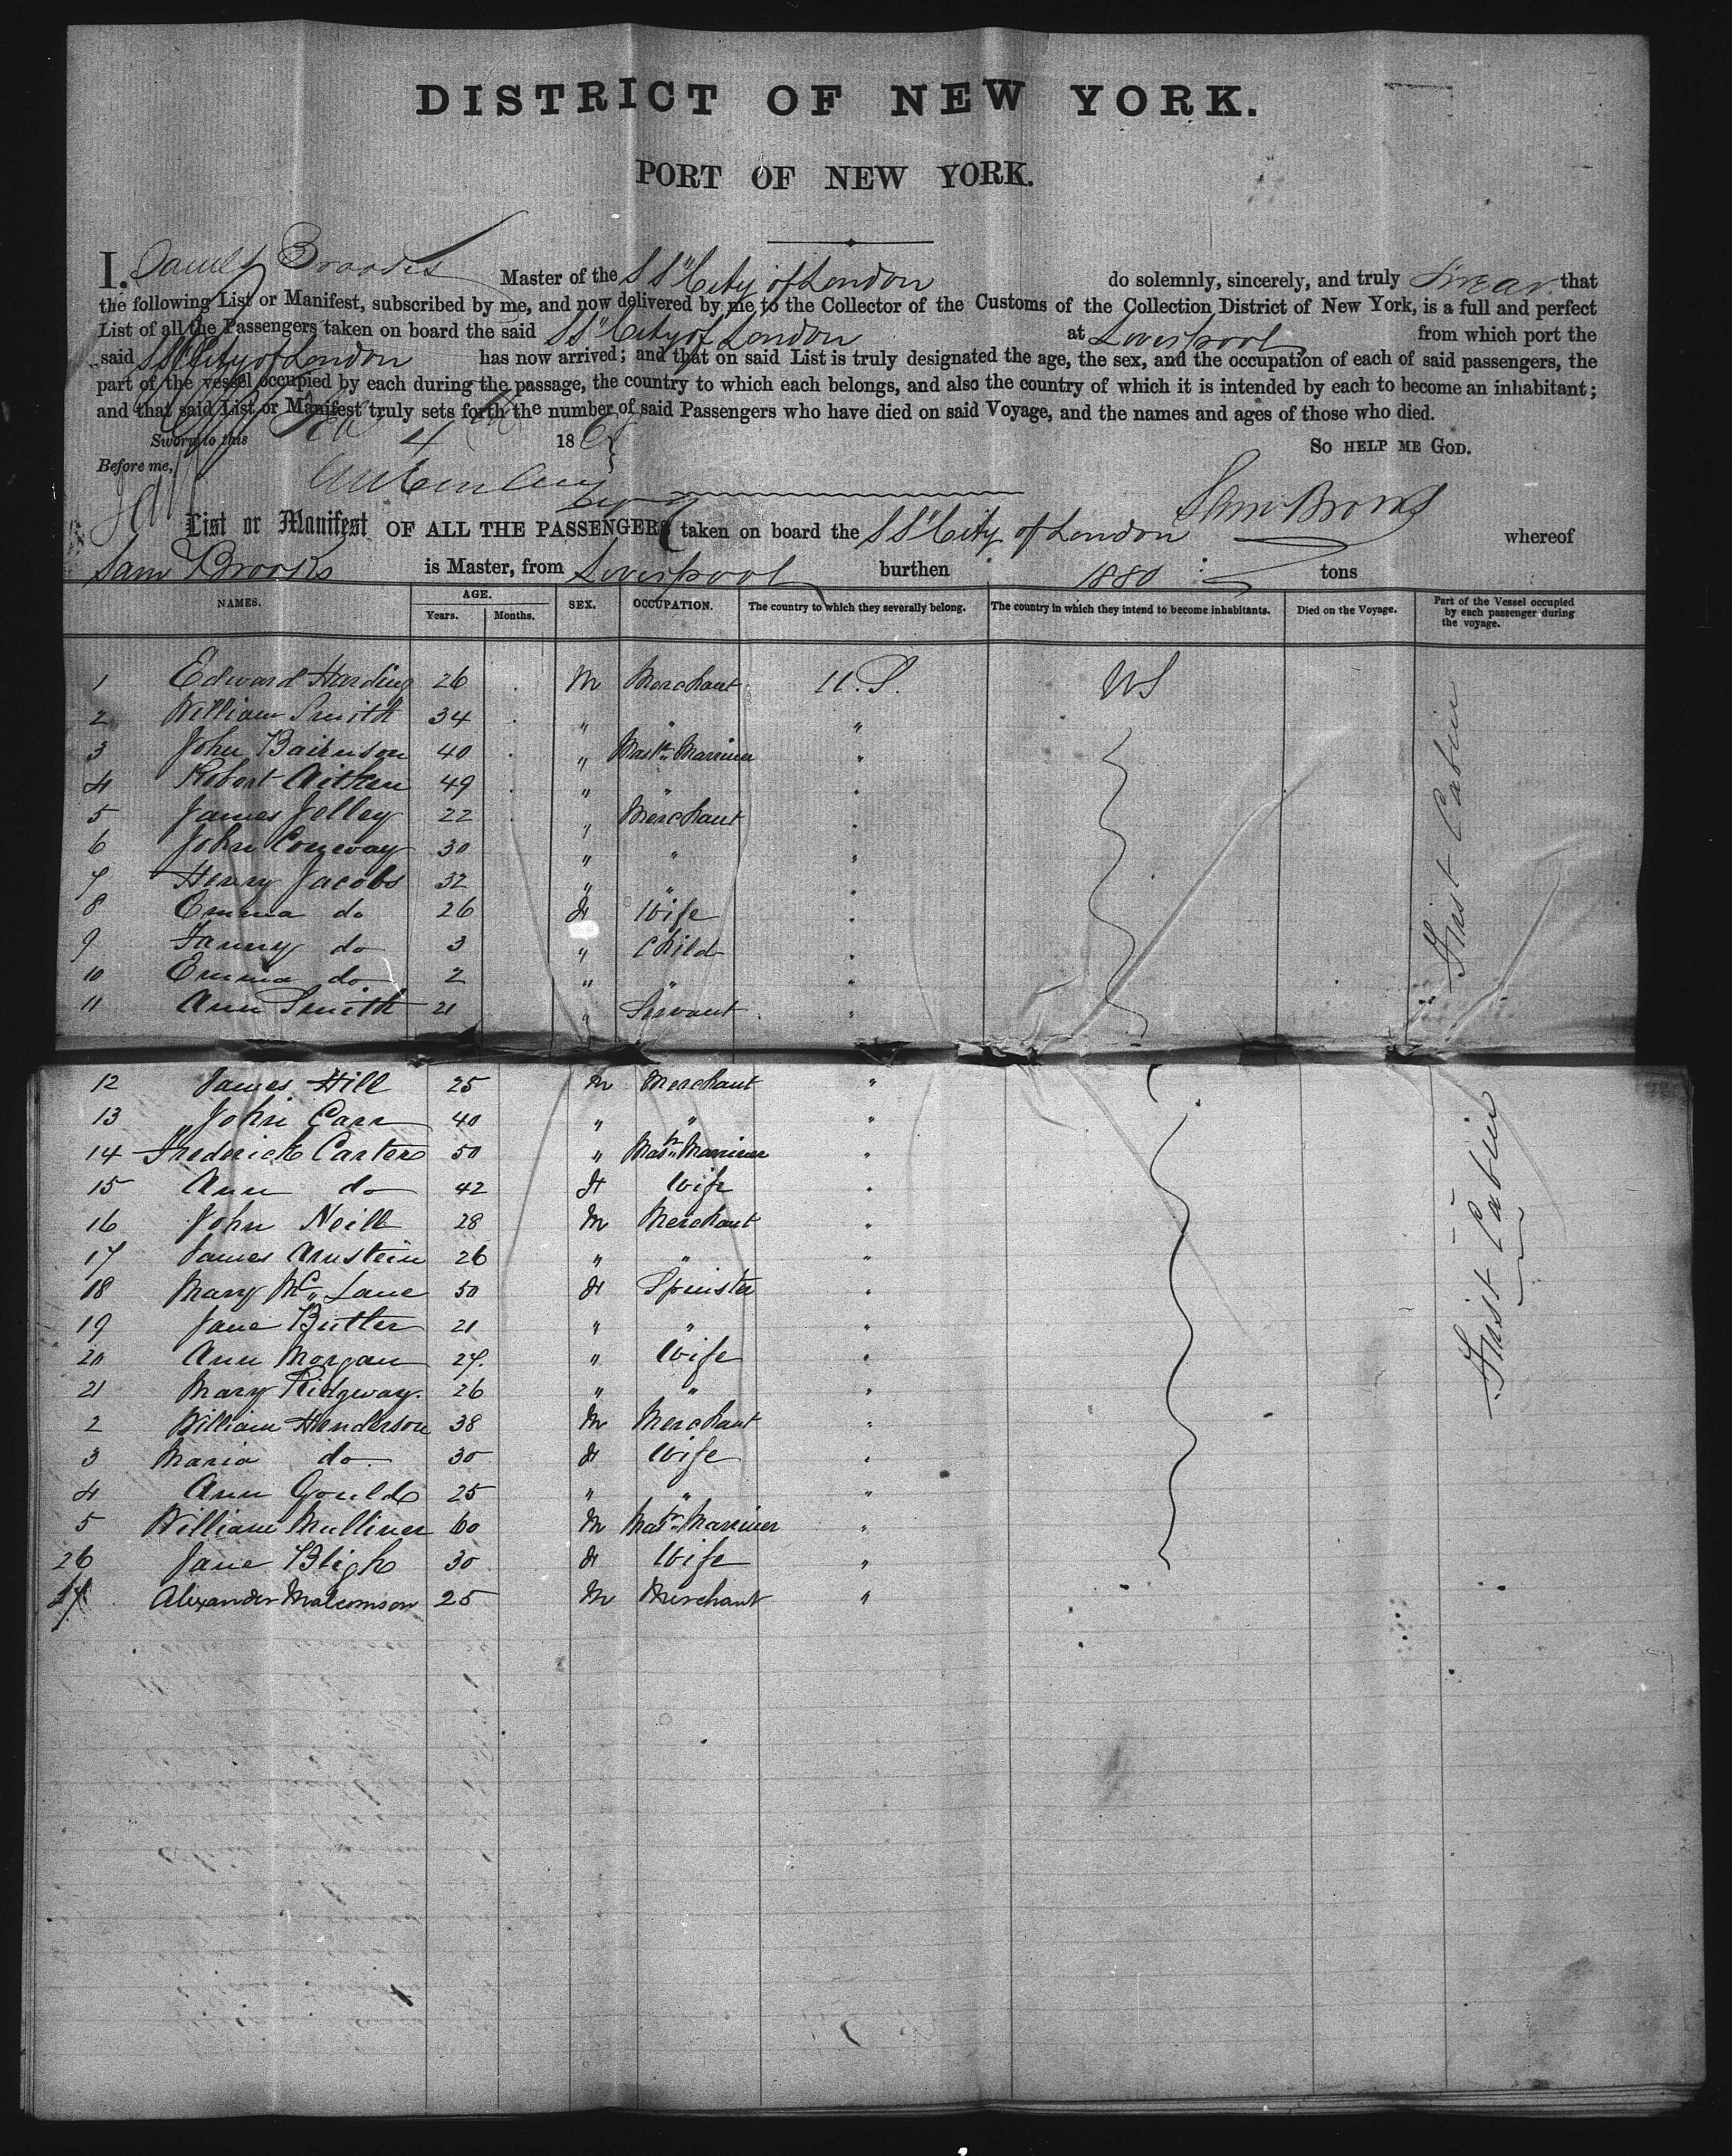 DISTRICT OF NEW YORK.
PORT OF NEW YORK.
I, Saml Brooks Master of the SS "City of London do solemnly, sincerely, and truly Swear that
the following List or Manifest, subscribed by me, and now delivered by me to the Collector of the Customs of the Collection District of New York, is a full and perfect
List of all the Passengers taken on board the said SS "City of London at Liverpool from which port the
said SS "City of London has now arrived; and that on said List is truly designated the age, the sex, and the occupation of each of said passengers, the
part of the vessel occupied by each during the passage, the country to which each belongs, and also the country of which it is intended by each to become an inhabitant;
and that said List or Manifest truly sets forth the number of said Passengers who have died on said Voyage, and the names and ages of those who died.
Sworn to this 4 186 SO HELP ME GOD.
Before me,
Sam Brooks
List or Manifest OF ALL THE PASSENGERS taken on board the SS "City of London whereof
Sam Brooks is Master, from Liverpool burthen 1880 tons
NAMES. AGE. Years. Months. SEX. OCCUPATION. The country to which they severally belong. The country in which they intend to become inhabitants. Died on the Voyage. Part of the Vessel occupied by each passenger during the voyage.
1 Edward Harding 26 M Merchant U.S. US
2 William Smith 34 " " "
3 John 40 " Mastr Marriner "
4 Robert Aitken 49 " " "
5 James Jelley 22 " Merchant "
6 John Conway 30 " " "
7 Henry Jacobs 32 " " "
8 Emma do 26 F Wife "
9 Fanny do 3 " Child "
10 Emma do 2 " " "
11 Ann Smith 21 " Servant "
First Cabin
12 James Hill 25 M Merchant "
13 John Carr 40 " " "
14 Frederick Carter 50 " Mastr Marriner "
15 Ann do 42 F Wife "
16 John Neill 28 M Merchant "
17 James Arnstein 26 " " "
18 Mary Mc Lane 50 F Spinster "
19 Jane Butler 21 " " "
20 Ann Morgan 24. " Wife "
21 Mary Ridgway. 26 " " "
2 William Henderson 38 M Merchant "
3 Maria do 30 F Wife "
4 Ann Gould 25 " " "
5 William Mulliner 60 M Mastr Marriner "
26 Jane Bligh 30 F Wife "
27 Alexander Malcomson 25 M Merchant "
First Cabin